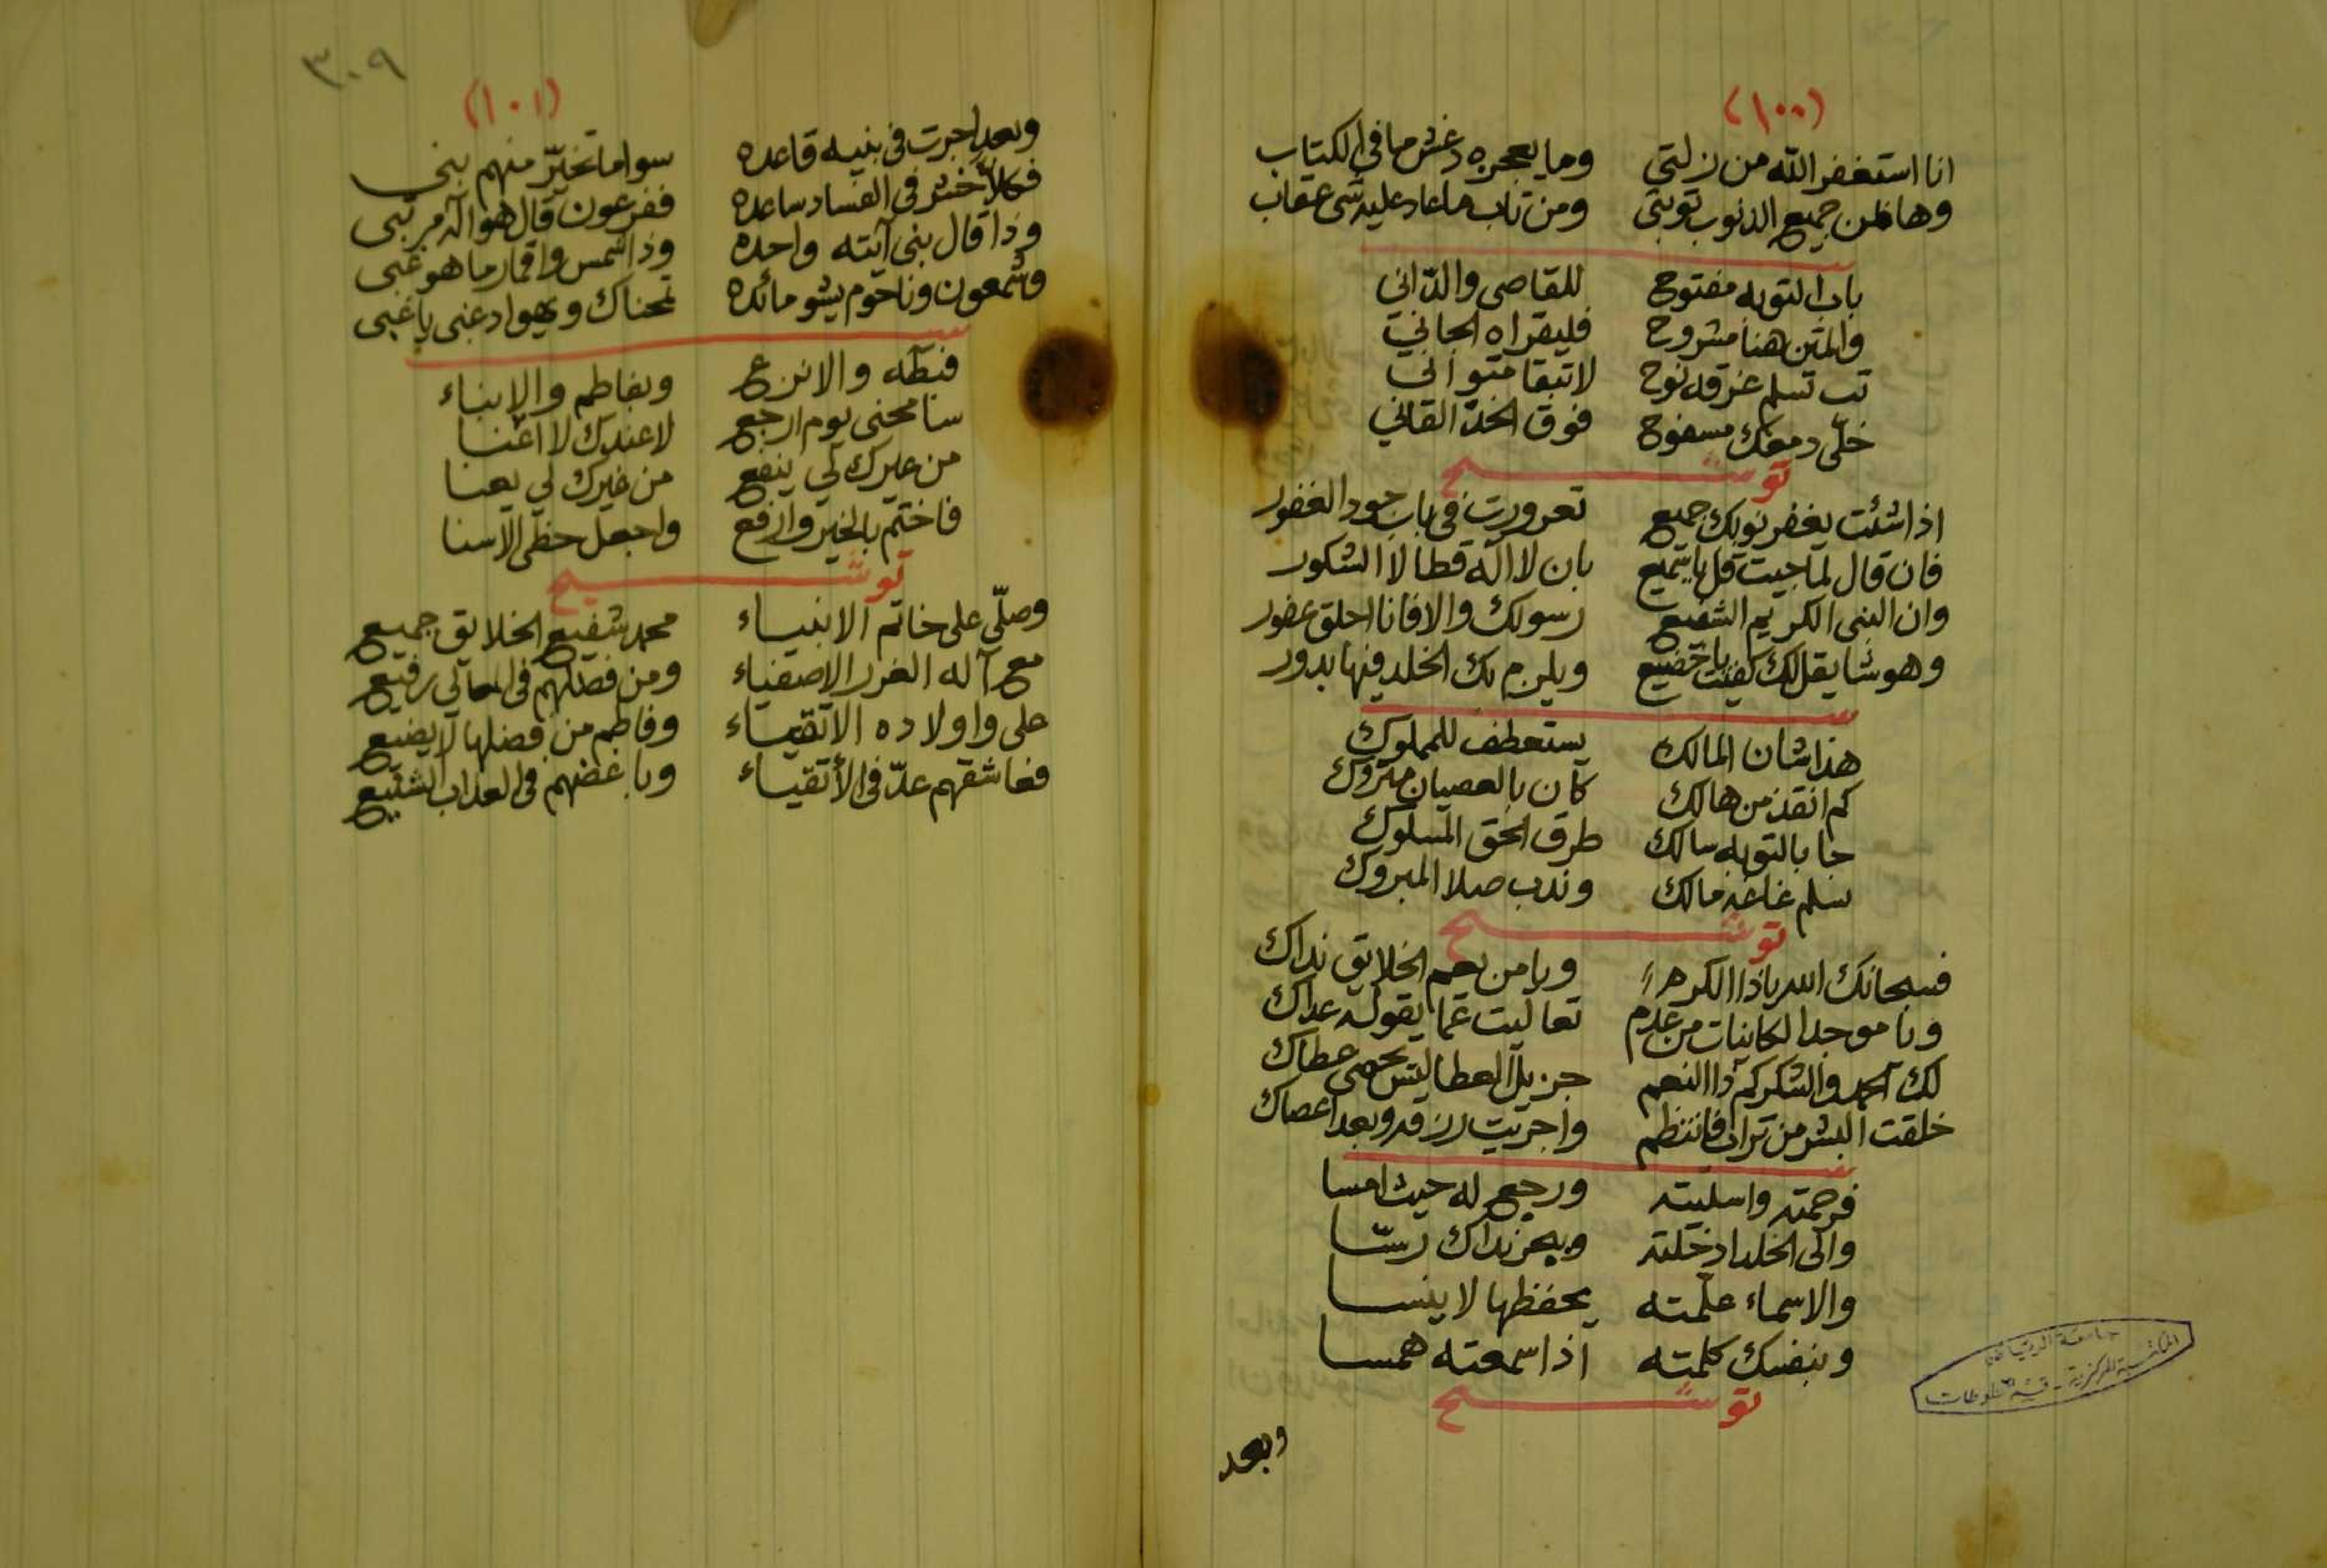 (١٠٠)
انا استغفر الله من زلتي وما يعجره دغش ما في الكتاب
وها ظن جميع الذنوب توبتي ومن تاب ما عاد عليه شي عقاب
باب التوبه مفتوح للقاصي والداني
والمتن هنا مشروح فليقراه الجاني
تب تسلم غرقه نوح لا تبقا متواني
خلّي دمعك مسفوح فوق الخدّ القاني
توشيح
اذا شئت يغفر نوبك جميع في باب جود الغفور
فان قال لما جيت قل يا سميع بان لا اله قط الا الشكور
وان النبي الكريم الشفيع رسولك والا فانا احلق عضور
وهو شا يقل لك كفيت يا خضيع ويلزم بك الخلد فيها بدور
هذا شان المالك يستعطف للمملوك
كم انقذ من هالك كان بالعصيان متروك
جا بالتوبه سالك طرق الحق المسلوك
سلم مالك وندب صلا المبروك
توشيح
فسبحانك الله ياذا الكرم ويا من يعم الخلايق نداك
ويا موجد الكاينات من عدم تعاليت عما يقوله عداك
لك الحمد والشكر كم ذا النعم جزيل العطا ليس يحصى عطاك
خلقت البشر من تراب فانتظم واجريت رزقه وبعد اعصاك
فرحمته واسليته ورجع له حيث امسا
والى الخلد ادخلته نداك رسّا
والاسماء علّمته يحفظها لا ينسا
وبنفسك كلمته اذا سمعته همسا
توشيح
وبعد
جامعة الرياض
المكتبة المركزية - قسم المخطوطات
٣٠٩
(١٠١)
وبعد اجرت في بنيه قاعده سوا ما تخيّر منهم بني
في الفساد ساعده ففرعون قال هو اله مر تبى
وذا قال بني آيته واحده وذا شمس واقمار ما هو غبى
وشمعون وناحوم يشو مائده نحناك ويهوا دعني يا غبى
فبطه والانزع وبفاطم والابناء
سامحني يوم ارجع لا عندك لا اغنا
من غيرك لي ينفع من غيرك لي يعنا
فاختم بالخير وارفع واجعل حظي الاسنا
توشيح
وصلّي على خاتم الانبياء محمد شفيع الخلايق جميع
مع آله الغرر الاصفياء ومن فضلهم في المعالي رفيع
علي واولاده الاتقياء وفاطم من فضلها لا يضيع
فعاشقهم عدّ في الأتقياء وباغضهم في العذاب الشنيع